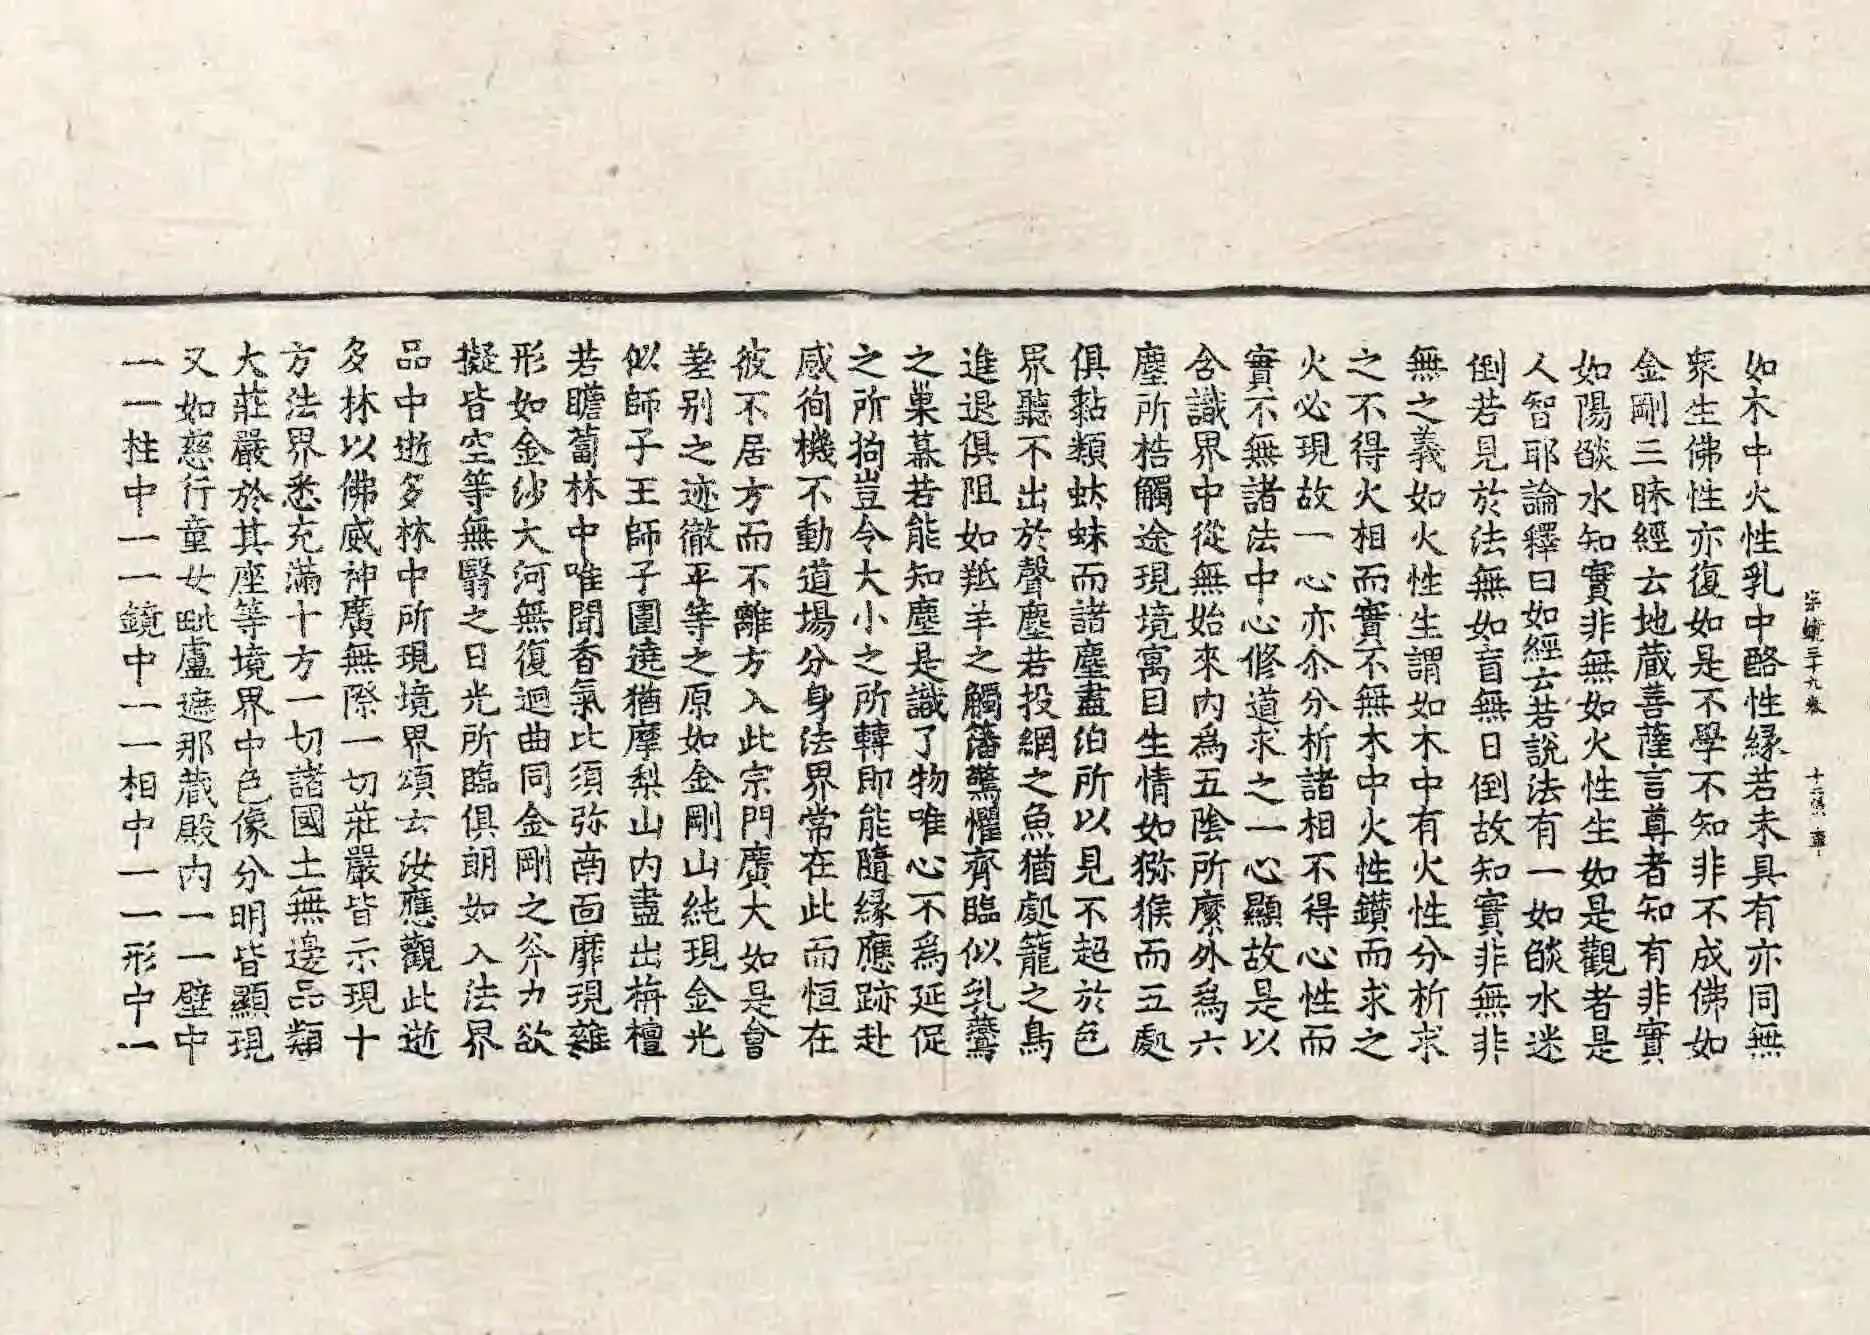 宗鏡三十九卷 十二張
如木中火性乳中酪性緣若未具有亦同無
衆生佛性亦復如是不學不知非不成佛如
金剛三昧經云地藏菩薩言尊者知有非實
如陽燄水知實非無如火性生如是觀者是
人智耶論釋曰如經云若說法有一如燄水迷
倒若見於法無如盲無日倒故知實非無非
無之義如火性生謂如木中有火性分析求
之不得火相而實不無木中火性鑽而求之
火必現故一心亦尒分析諸相不得心性而
實不無諸法中心修道求之一心顯故是以
含識界中從無始來內爲五陰所縻外爲六
塵所梏觸途現境寓目生情如猕猴而五處
俱黏類蚨䖢而諸塵盡泊所以見不超於色
界聽不出於聲塵若投網之魚猶處籠之鳥
進退俱阻如羝羊之觸藩驚懼齊臨似乳鷰
之巢幕若能知塵是識了物唯心不爲延促
之所拘豈令大小之所轉即能隨緣應跡赴
感徇機不動道場分身法界常在此而恒在
彼不居方而不離方入此宗門廣大如是會
差別之迹徹平等之原如金剛山純現金光
似師子王師子圍遶猶摩梨山內盡出栴檀
若瞻蔔林中唯聞香氣比須弥南面靡現雜
形如金沙大河無復迴曲同金剛之斧力欲
擬皆空等無翳之日光所臨俱朗如入法界
品中逝多林中所現境界頌云汝應觀此逝
多林以佛威神廣無際一切莊嚴皆示現十
方法界悉充滿十方一切諸國土無邊品類
大莊嚴於其座等境界中色像分明皆顯現
又如慈行童女毗盧遮那藏殿內一一壁中
一一柱中一一鏡中一一相中一一形中一